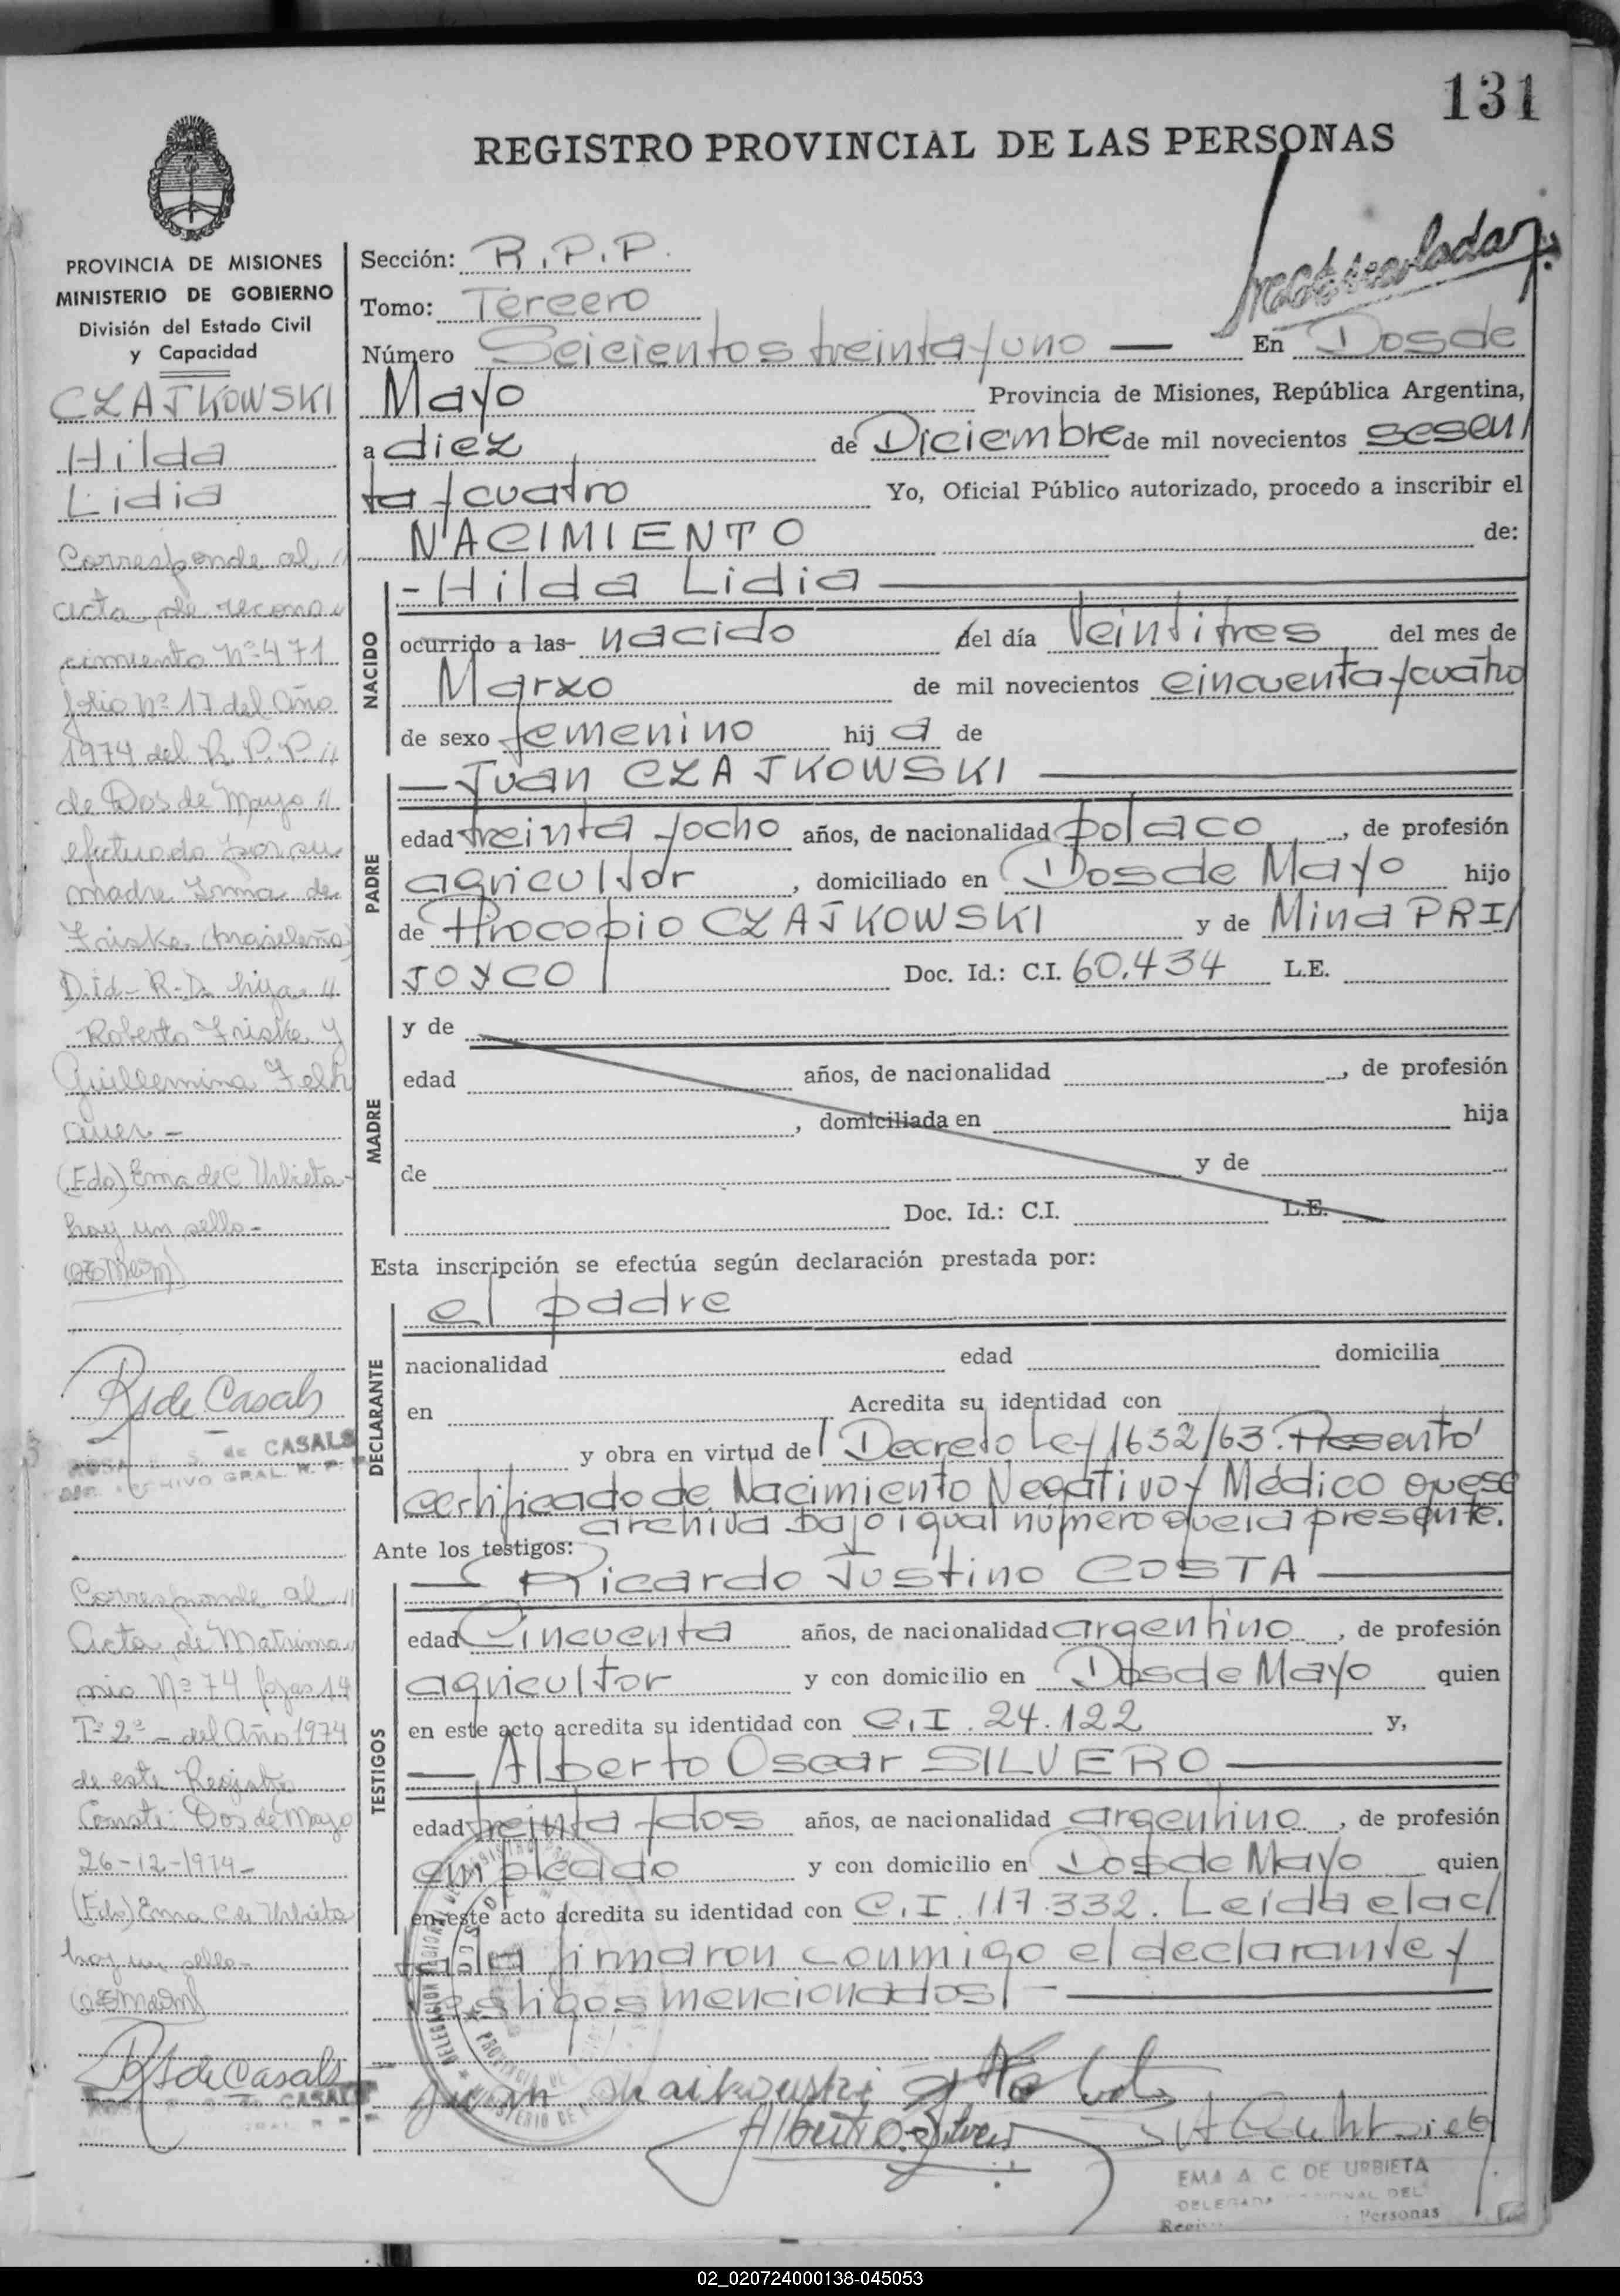 131
REGISTRO PROVINCIAL DE LAS PERSONAS
PROVINCIA DE MISIONES
MINISTERIO DE GOBIERNO
División del Estado Civil
y Capacidad
CZAJKOWSKI
Hilda
Lidia
Corresponde al //
acta de recono //
cimiento Nº 471
folio Nº 17 del Año
1974 del R.P.P. //
de Dos de Mayo //
efectuado por su
madre Irma de
Friske (brasileña)
D.Id- R.D. hija //
Roberto Friske y
Guillermina Felh
auer -
(Fdo) Ema de C Urbieta -
hay un sello -
Rs de Casals
ROSA E. S. de CASALS
ARCHIVO GRAL. R. P.
Corresponde al //
Acta de Matrimo
nio Nº 74 fojas 14
Tº 2º - del Año 1974
de este Registro
Conste: Dos de Mayo
26-12-1974-
(Fdo) Ema C de Urbieta
hay un sello -
Rs de Casals
CASALS
Sección: R.P.P.
Tomo: Tercero
Número Seicientos treinta y uno — En Dos de
Mayo Provincia de Misiones, República Argentina,
a diez de Diciembre de mil novecientos sesen/
ta y cuatro Yo, Oficial Público autorizado, procedo a inscribir el
NACIMIENTO de:
NACIDO
- Hilda Lidia
ocurrido a las- nacido del día Veintitres del mes de
Marzo de mil novecientos cincuenta y cuatro
de sexo femenino hij a de
PADRE
— Juan CZAJKOWSKI
edad treinta y ocho años, de nacionalidad polaco, de profesión
agricultor, domiciliado en Dos de Mayo hijo
de Procopio CZAJKOWSKI y de Mina PRI/
JOYCO Doc. Id.: C.I. 60.434 L.E.
MADRE
y de
edad años, de nacionalidad , de profesión
, domiciliada en hija
de y de
Doc. Id.: C.I. L.E.
Esta inscripción se efectúa según declaración prestada por:
DECLARANTE
el padre
nacionalidad edad domicilia
en Acredita su identidad con
y obra en virtud del Decreto Ley 1632/63. Presentó
certificado de Nacimiento Negativo y Médico que se
archiva bajo igual número que la presente.
Ante los testigos:
TESTIGOS
— Ricardo Justino COSTA —
edad Cincuenta años, de nacionalidad argentino, de profesión
agricultor y con domicilio en Dos de Mayo quien
en este acto acredita su identidad con C.I. 24.122 y,
— Alberto Oscar SILVERO —
edad treinta y dos años, de nacionalidad argentino, de profesión
empleado y con domicilio en Dos de Mayo quien
en este acto acredita su identidad con C.I. 117.332. Leída el ac/
ta la firmaron conmigo el declarante y
testigos mencionados -
Alberto O. Silvero
EMA A. C. DE URBIETA
DELEGADA
Personas
02_020724000138-045053